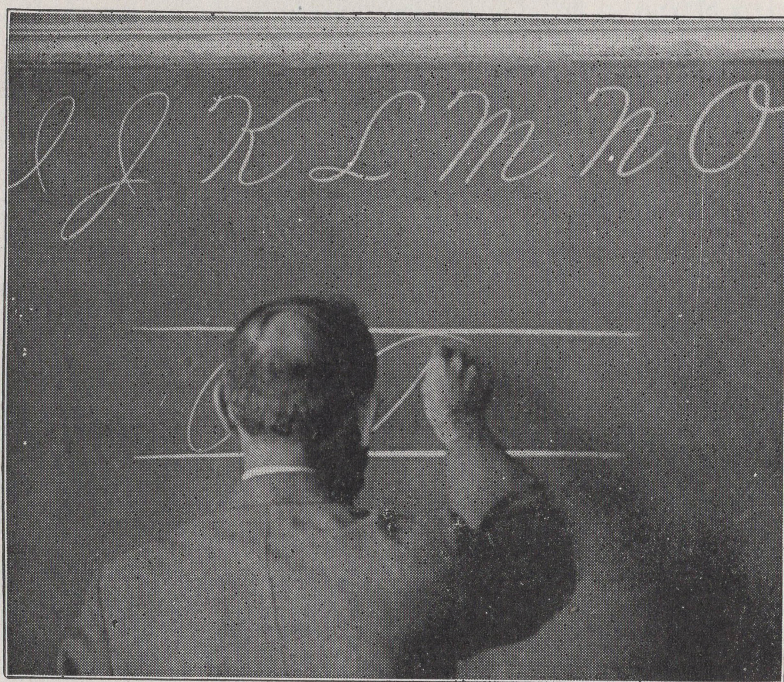 I J K L M N O